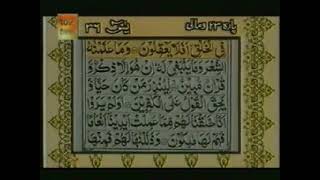 پارہ ۲۳ ومالی یٰسٓ ۳۶
فِی الْخَلْقِ اَفَلَا یَعْقِلُوْنَ وَمَا عَلَّمْنٰهُ
الشِّعْرَ وَمَا یَنْۢبَغِیْ لَهٗ اِنْ هُوَ اِلَّا ذِكْرٌ وَّ
قُرْاٰنٌ مُّبِیْنٌ لِّیُنْذِرَ مَنْ كَانَ حَیًّا وَّ
یَحِقَّ الْقَوْلُ عَلَى الْكٰفِرِیْنَ اَوَلَمْ یَرَوْا
اَنَّا خَلَقْنَا لَهُمْ مِّمَّا عَمِلَتْ اَیْدِیْنَاۤ اَنْعَامًا
فَهُمْ لَهَا مٰلِكُوْنَ وَذَلَّلْنٰهَا لَهُمْ فَمِنْهَا